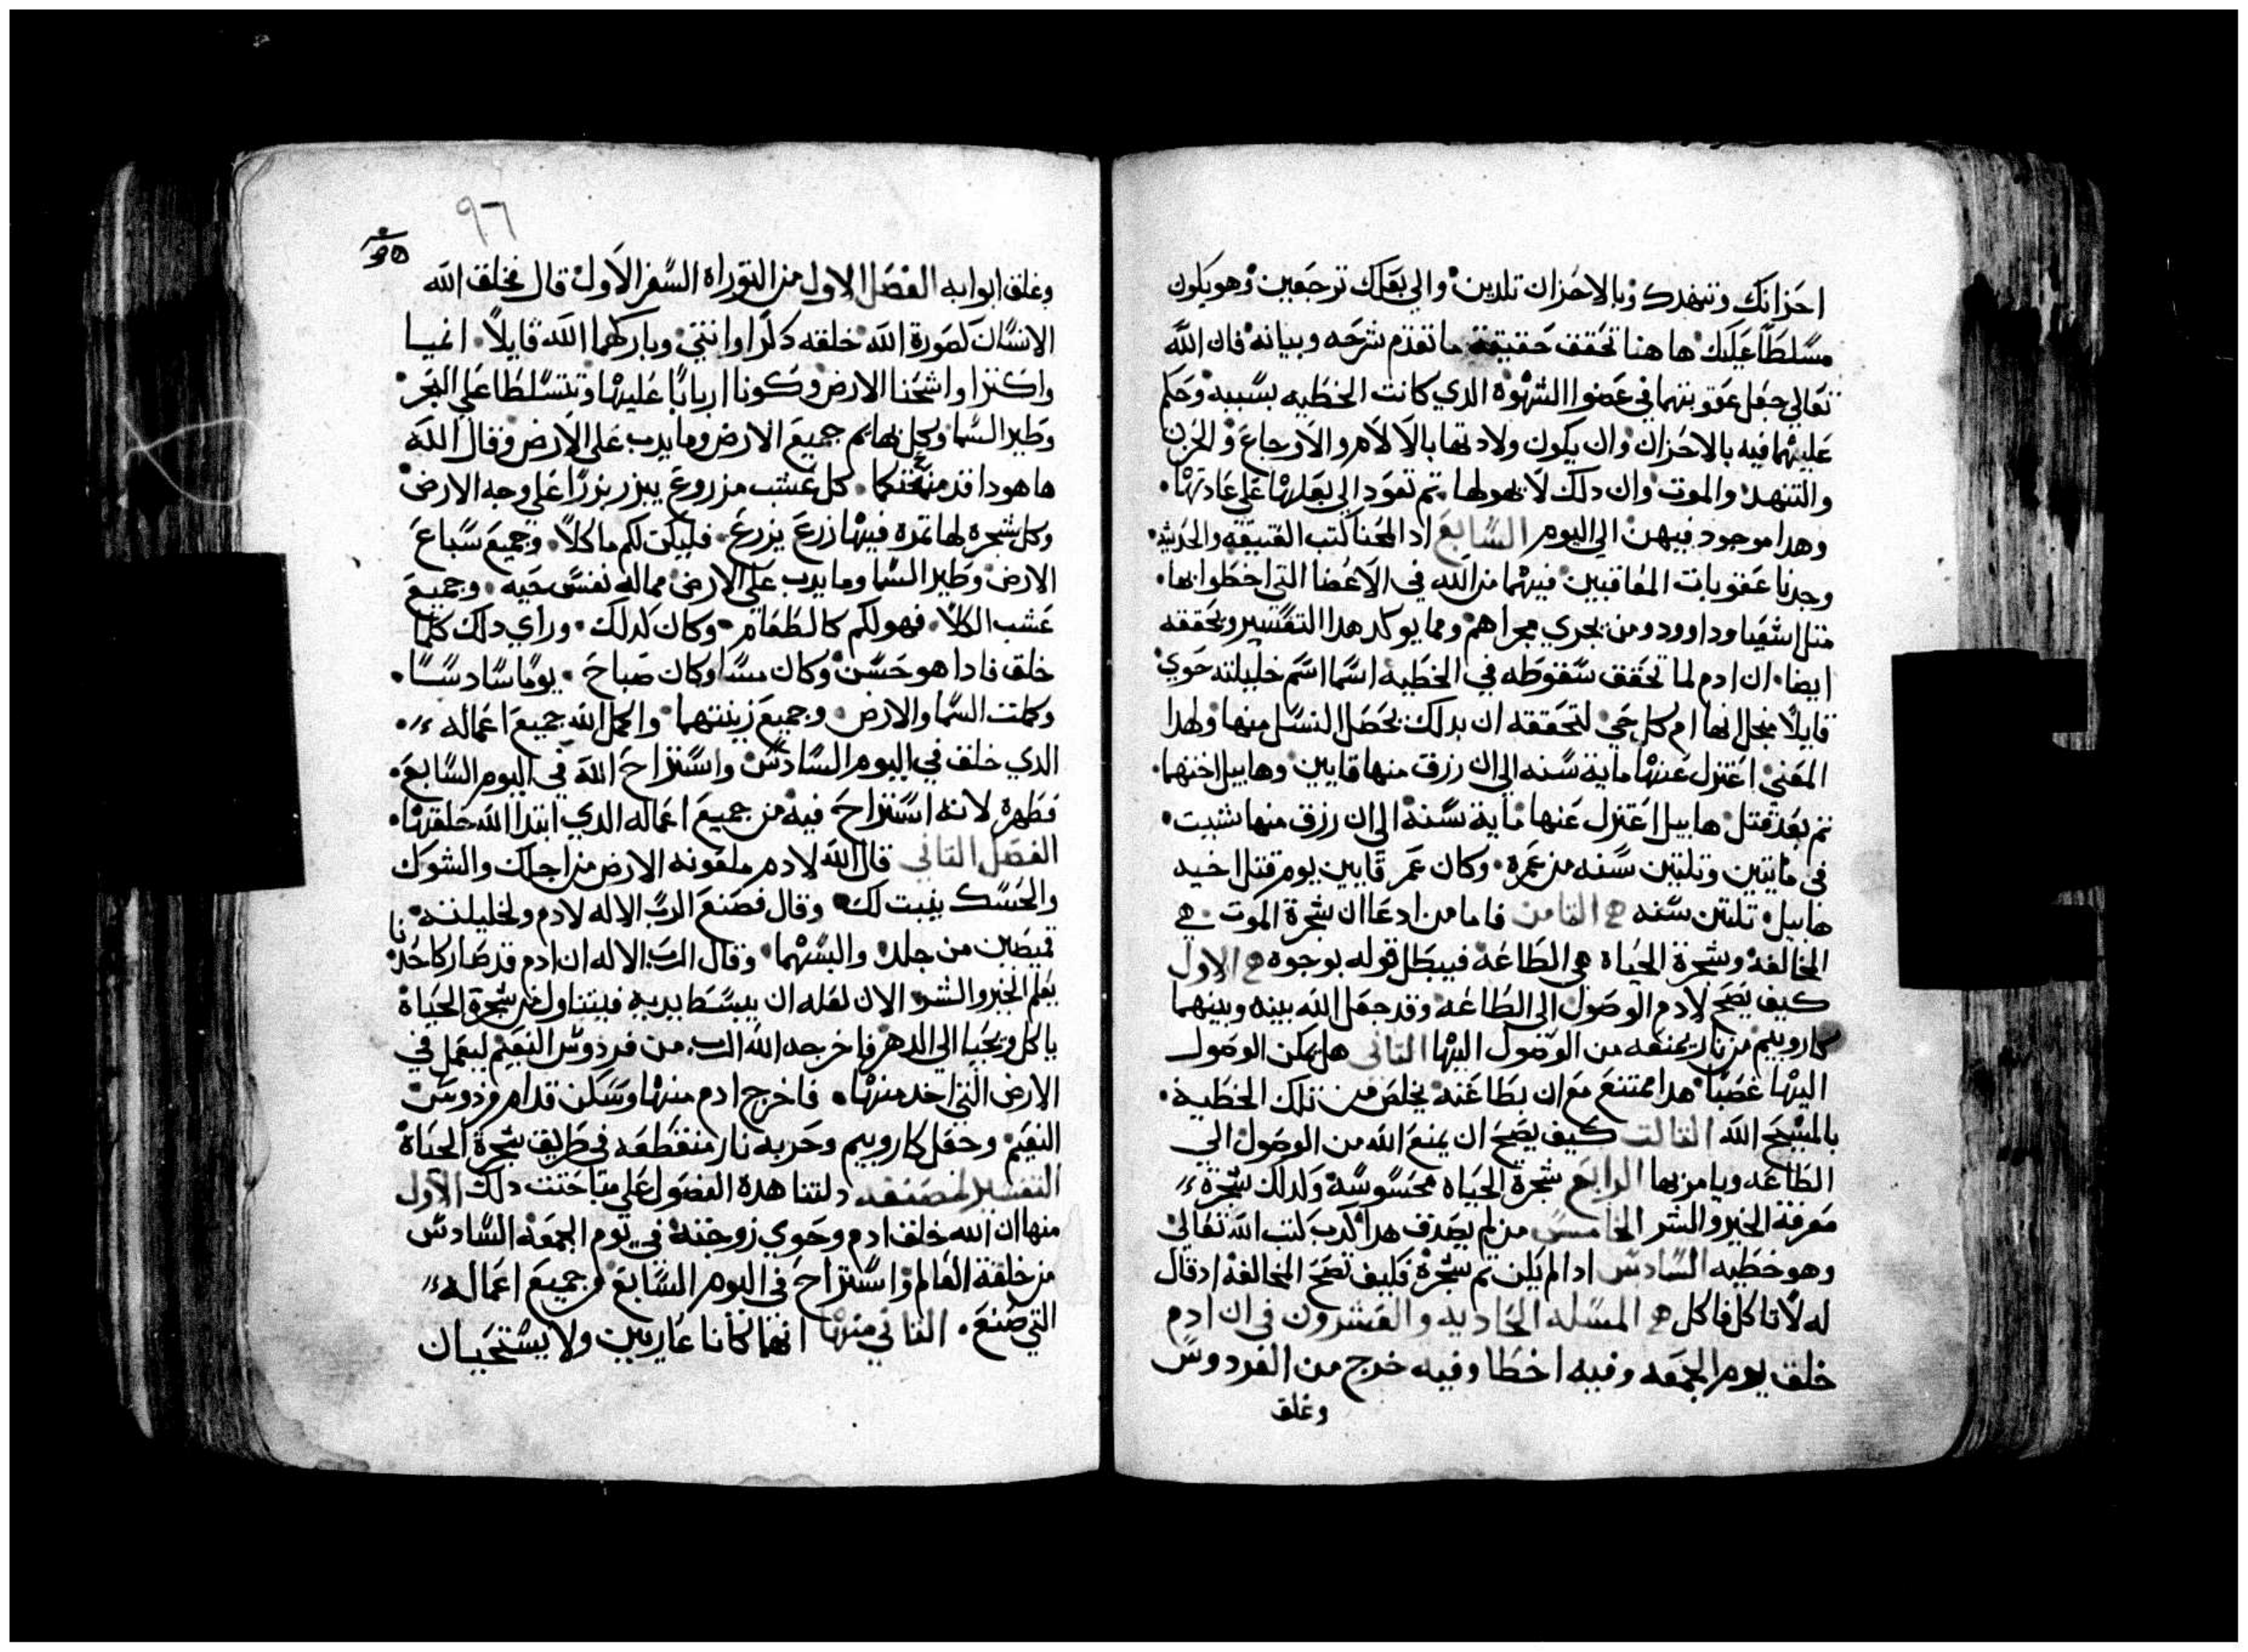 احزانك وتنهدك وبالاحزان تلدين والي بعلك ترجعين وهو يكون
مسلطا عليك هاهنا تحقق حقيقة ما تقدم شرحه وبيانه فان الله
تعالي جعل عقوبتهما في عضوا الشهوه الدي كانت الخطيه بسببه وحكم
عليهما فيه بالاحزان وان يكون ولادتها بالالام والاوجاع والحزن
والتنهد والموت وان دلك لا يهولها تم تعود الي بعلها علي عادتها
وهدا موجود فيهن الي اليوم السابع اد المحنا كتب العتيقه والحديثه
وجدنا عقوبات المعاقبين فيهما من الله في الاعضا التي اخطوا بها
متل اشعيا وداوود ومن يجري مجراهم ومما يوكد هدا التفسير ويحققه
ايضا ان ادم لما تحقق سقوطه في الخطيه اسما اسم خليلته حوي
قايلا من اجل انها ام كل حي لتحققه ان بدلك يحصل النسل منها ولهدا
المعني اعتزل عنها ماية سنه الي ان رزق منها قايين وهابيل اختهما
تم بعد قتل هابيل اعتزل عنها ماية سنه الي ان رزق منها شيت
في مايتين وتلتين سنه من عمره وكان عمر قايين يوم قتل اخيه
هابيل تلتين سنه التامن فاما من ادعا ان شجرة الموت هي
المخالفه وشجرة الحياه هي الطاعه فيبطل قوله بوجوه الاول
كيف يصح لادم الوصول الي الطاعه وقد جعل الله بينه وبينهما
كاروبيم من نار يمنعه من الوصول اليها التاني هل يمكن الوصول
اليها غصبا هدا ممتنع مع ان بطاعته يخلص من تلك الخطيه
بالمسيح الله التالت كيف يصح ان يمنع الله من الوصول الي
الطاعه ويامر بها الرابع شجرة الحياه محسوسه وكدلك شجرة
معرفة الخير والشر الخامس من لم يصدق هدا كدب كتب الله تعالي
وهو خطيه السادس ادا لم يكن تم شجرة فكيف تصح المخالفه اد قال
له لا تاكل فاكل المسله الحاديه والعشرون في ان ادم
خلق يوم الجمعه وفيه اخطا وفيه خرج من الفردوس
وغلق
٩٦
وغلق ابوابه الفصل الاول من التوراه السفر الاول قال فخلق الله
الانسان لصورة الله خلقه دكرا وانتي وباركهما الله قايلا انميا
واكترا واشحنا الارض وكونا اربابا عليها وتتسلطا علي البحر
وطير السما وكل بهايم جميع الارض وما يدب علي الارض وقال الله
ها هودا قد منحتكما كل عشب مزروع يبزر بزرا علي وجه الارض
وكل شجره لها تمره فيها زرع يزرع فليكن لكم ماكلا وجميع سباع
الارض وطير السما وما يدب علي الارض مماله نفس حيه وجميع
عشب الكلا فهو لكم كالطعام وكان كدلك وراي دلك كلما
خلق فادا هو حسن وكان مسا وكان صباح يوما سادسا
وكملت السما والارض وجميع زينتهما واكمل الله جميع اعماله
الدي خلق في اليوم السادس واستراح الله في اليوم السابع
فطهره لانه استراح فيه من جميع اعماله الدي ابتدا الله خلقتها
الفصل التاني قال الله لادم ملعونه الارض من اجلك والشوك
والحسك ينبت لك وقال فصنع الرب الاله لادم ولخليلته
قميصين من جلد والبسهما وقال الرب الاله ان ادم قد صار كاحدنا
يعلم الخير والشر الان لعله ان يبسط يديه فيتناول من شجرة الحياة
ياكل ويحيا الي الدهر فاخرجه الله الرب من فردوس النعيم ليعمل في
الارض التي اخد منها فاخرج ادم منها وسكن قدام فردوس
النعيم وجعل كاروبيم وحربه نار منقطعه في طريق شجرة الحياة
التفسير لمصنفه دلتنا هده الفصول علي مباحتت دلك الاول
منها ان الله خلق ادم وحوي زوجته في يوم الجمعه السادس
من خلقة العالم واستراح في اليوم السابع من جميع اعماله
التي صنع التاني منها انهما كانا عاريين ولا يستحيان